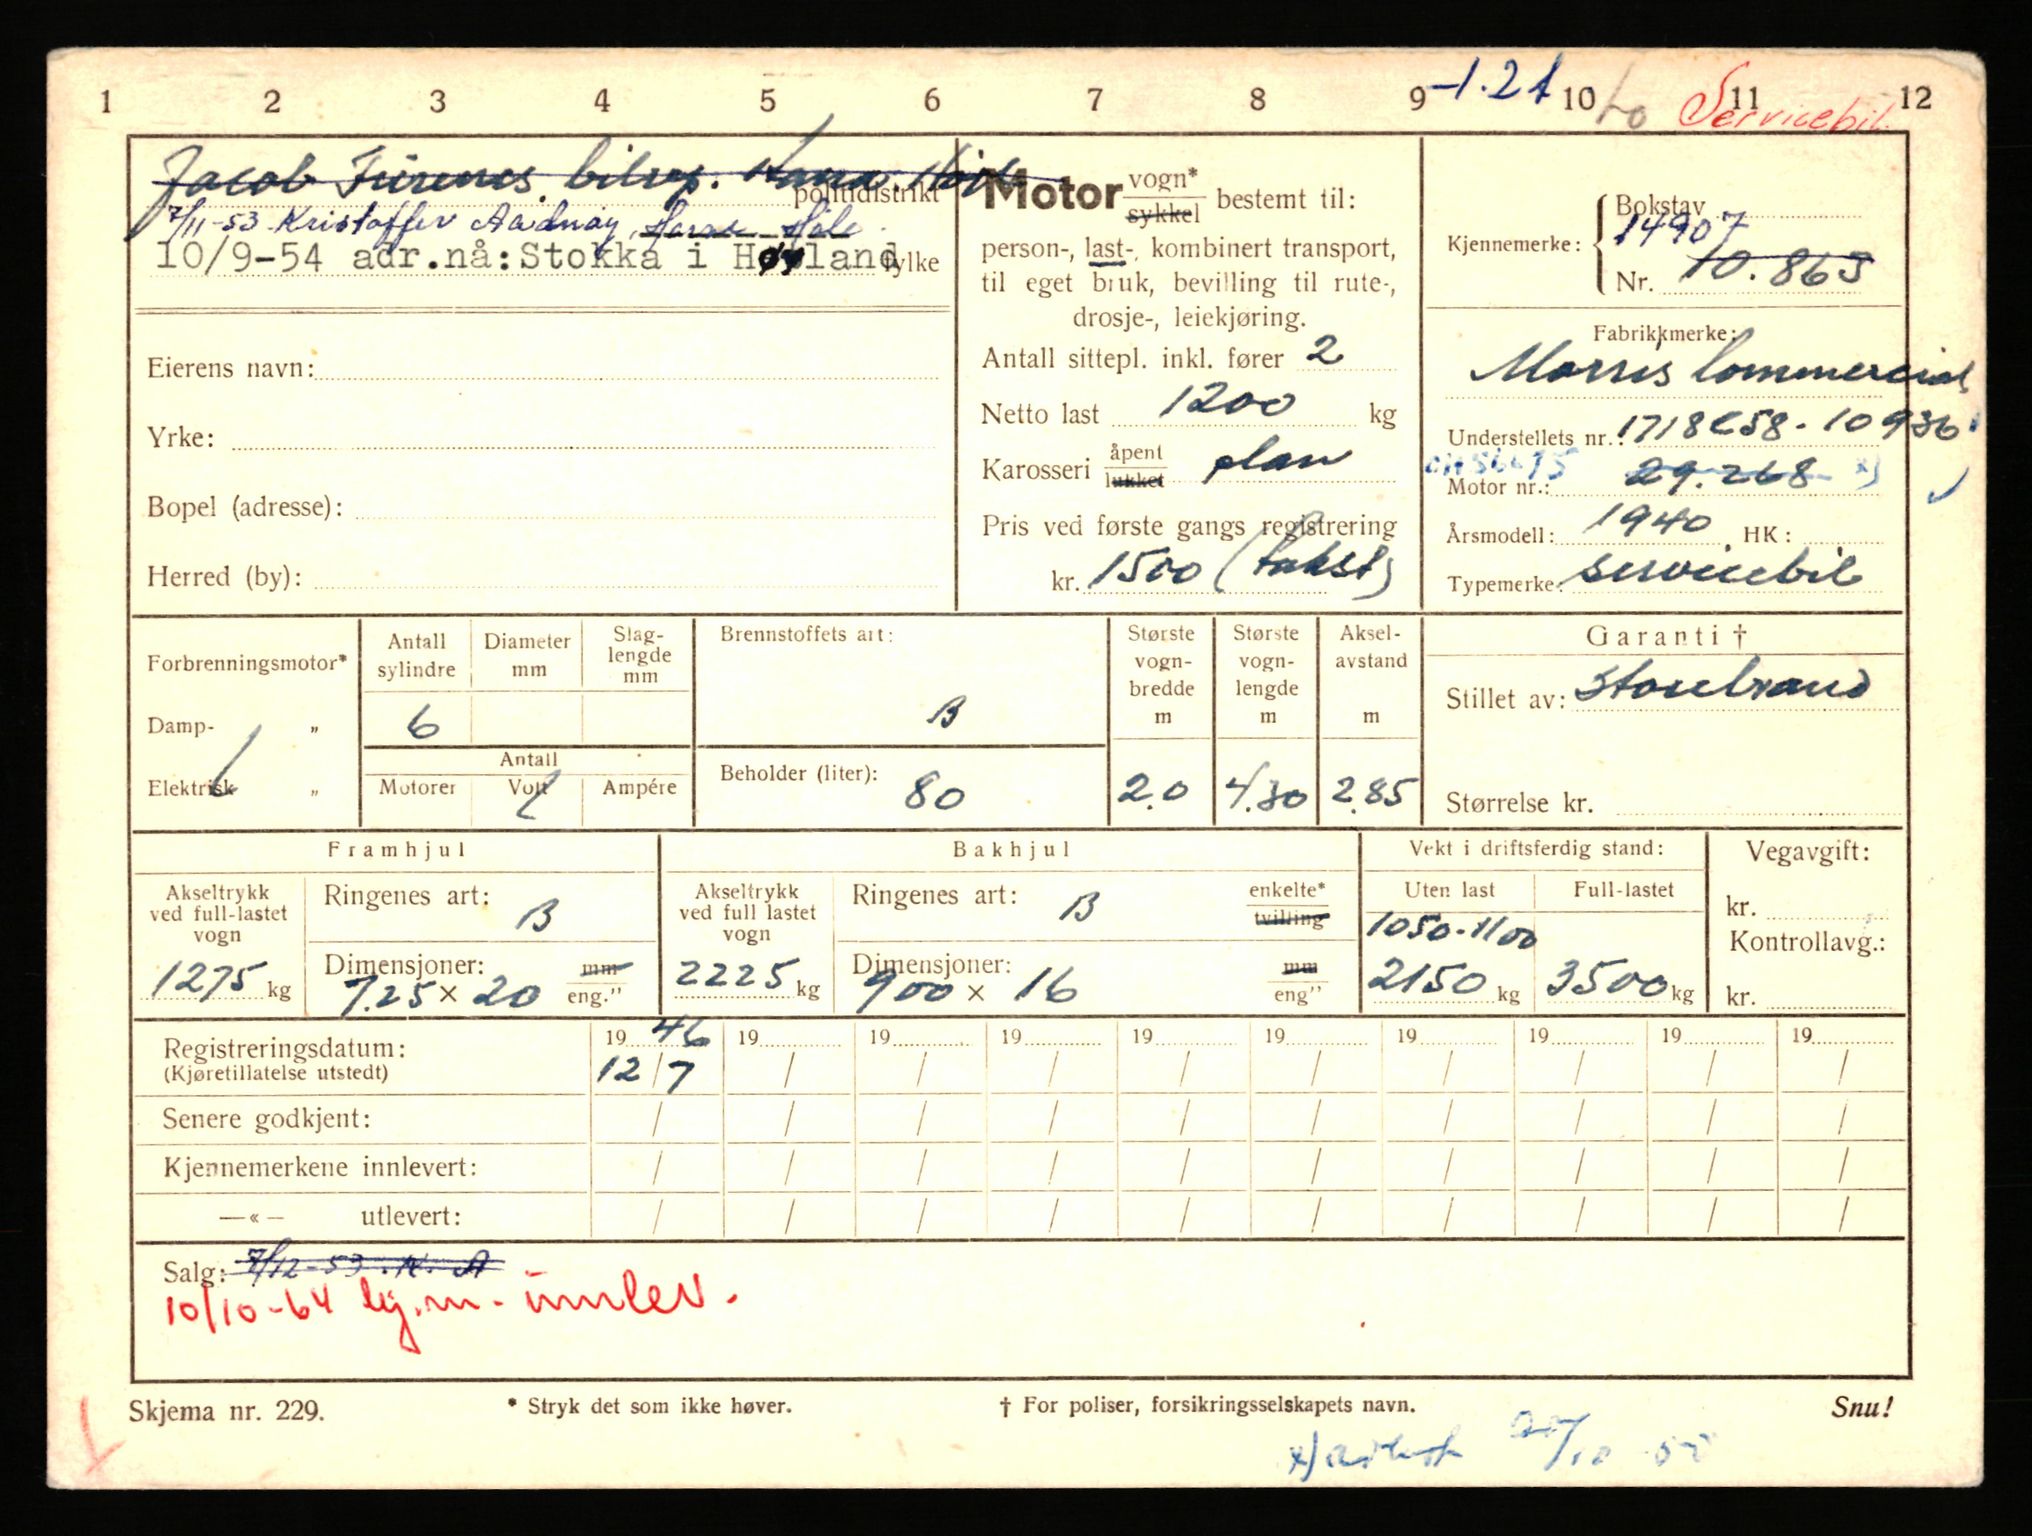 1 2 3 4 5 6 7 8 9 -1.21 10 11 12
Servicebil.
Jacob Furenes bilrep.
politidistrikt
7/11-53 Kristoffer Aadnøy,
10/9-54 adr.nå: Stokka i Høyland
fylke
Eierens navn:
Yrke:
Bopel (adresse):
Herred (by):
Motor vogn* sykkel bestemt til:
person-, last-, kombinert transport,
til eget bruk, bevilling til rute-,
drosje-, leiekjøring.
Antall sittepl. inkl. fører 2
Netto last 1200 kg
Karosseri åpent lukket plan
Pris ved første gangs registrering
kr. 1500 (takst)
Bokstav
14907
Kjennemerke:
Nr. 10.865
Fabrikkmerke:
Morris Commercial
Understellets nr.: 1718C58-10936
Motor nr.: 29.268 x)
Årsmodell: 1940 HK:
Typemerke: servicebil
Forbrenningsmotor*
Damp- „
Elektrisk „
Antall sylindre
6
Diameter mm
Slaglengde mm
Antall
Motorer Volt Ampére
Brennstoffets art:
B
Beholder (liter): 80
Største vognbredde m
2.0
Største vognlengde m
4.30
Akselavstand m
2.85
Garanti †
Stillet av: Storebrand
Størrelse kr.
Framhjul
Akseltrykk ved full-lastet vogn
1275 kg
Ringenes art: B
Dimensjoner: mm
7.25 × 20 eng."
Bakhjul
Akseltrykk ved full lastet vogn
2225 kg
Ringenes art: B enkelte* tvilling
Dimensjoner: mm
900 × 16 eng"
Vekt i driftsferdig stand:
Uten last Full-lastet
1050-1100
2150 kg 3500 kg
Vegavgift:
kr.
Kontrollavg.:
kr.
Registreringsdatum: 19 46 19 19 19 19 19 19 19 19 19
(Kjøretillatelse utstedt) 12/7 / / / / / / / / /
Senere godkjent: / / / / / / / / / /
Kjennemerkene innlevert: / / / / / / / / / /
—«— utlevert: / / / / / / / / / /
Salg: 7/12-53. K. A
10/10-64 kj.m. innlev.
Skjema nr. 229.
* Stryk det som ikke høver.
† For poliser, forsikringsselskapets navn.
Snu!